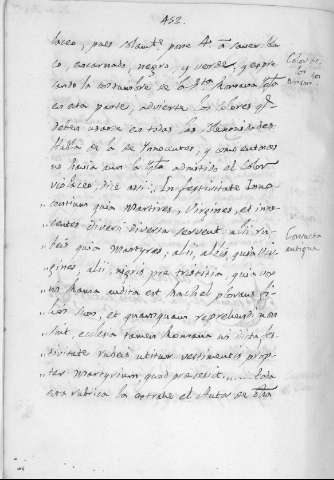 452.
laceo, pues solam.te pone 4 a saver bla
co, encarnado, negro, y verde, y expre
sando la costumbre de la S.ta Romana Ygl.a
en esta parte, advierte los colores q.e
deben usarse en todas las
Habla de la de Ynocentes, y como entonces
no havia aun la Ygl.a admitido el color
violaceo, dice assi: In festivitate Inno
centium quia Martires, Virgines, et inno
centes diversi diversa servent, alii ru
beis quia Martyres, alii, alba quia Vir
gines, alii, nigro pre tristitia, quia vox
in hrama audita est Rachel plorans fi
lios suos, et quamquam reprehendi non
sint, eclesia tamen Romana in dicta fes
tivitate rubeis utitur vestimentis prop
ter Martyrium quod precesit..... toda
esta rubrica la estrahe el Autor de
Colores
los
antigua